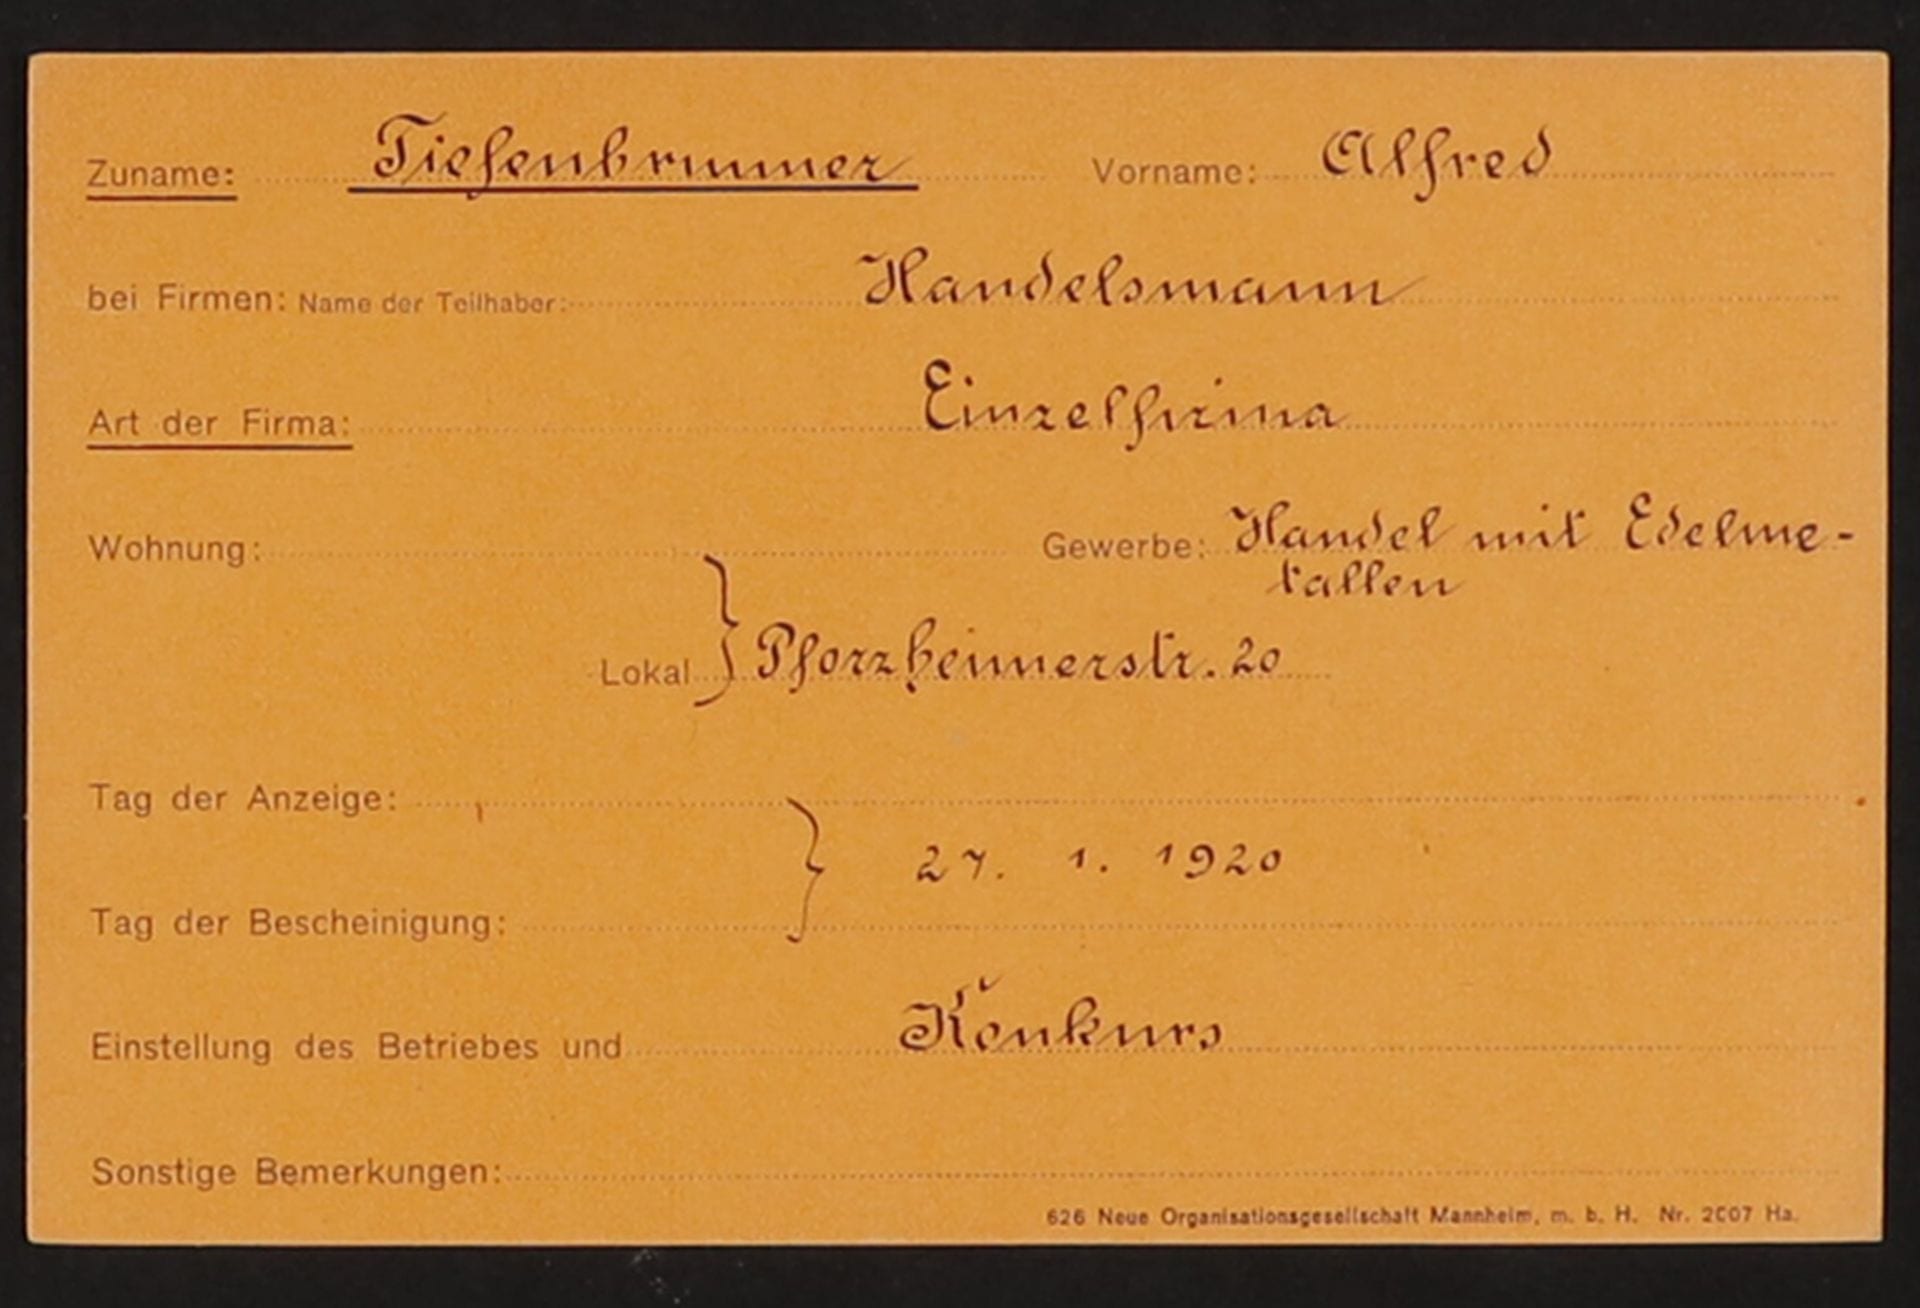 Zuname: Tiefenbrunner Vorname: Alfred
bei Firmen: Name der Teilhaber: Handelsmann
Art der Firma: Einzelfirma
Wohnung: Gewerbe: Handel mit Edelme-
tallen
Lokal } Pforzheimerstr. 20
Tag der Anzeige:
} 27. 1. 1920
Tag der Bescheinigung:
Einstellung des Betriebes und Konkurs
Sonstige Bemerkungen:
626 Neue Organisationsgesellschaft Mannheim, m. b. H. Nr. 2007 Ha.